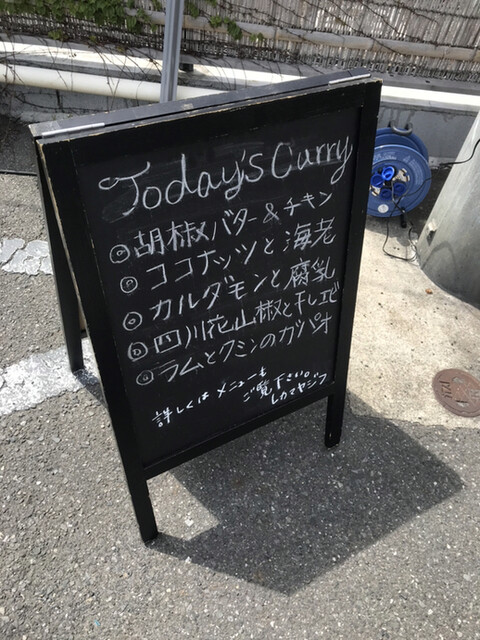 Today's Curry
◎胡椒バター&チキン
◎ココナッツと海老
◎カルダモンと腐乳
◎四川花山椒と干しエビ
◎ラムとクミンのガパオ
詳しくはメニューも
ご覧下さい。